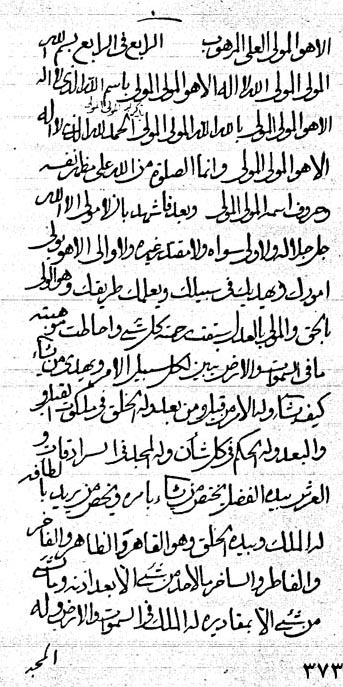 الا هو المولى العلى المرهوب الرابع فى الرابع بسم الله
المولى المولى الله لا اله الا هو المولى المولى باسم الله الذى لا اله
الا هو المولى المولى بالله الله المولى المولى الحمد لله الذى لا اله
الا هو المولى المولى وانما الصلوة من الله على مظهر نفسه
وحروف اسمه المولى المولى وبعد فاشهد بان لا مولى الا الله
جل جلاله ولا ولى سواه ولا مقتدر غيره ولا والى الا هو يولى
امورك ويهديك فى سبيلك ويعلمك طريقك وهو الولى
بالحق والمولى بالعدل سبقت رحمته كل شئ واحاطت هيبته
ما فى السموات والارض يبين لكل سبيل الامر ويهدى من يشاء
كيف يشاء وله الامر من قبل ومن بعد وله الخلق فى ملكوت القبل و
والبعد وله الحكم فى كل شأن وله المجد فى السرادقات و
العرش بيده الفضل يختص من يشاء بامره ويخص من يريد بالطافه
له الملك وبيده الخلق وهو القاهر والظاهر والفاخر
والفاطر والساخر ما لاحد من شئ الا بعد اذنه وما لشئ
من شئ الا بمقاديره له الملك فى السموات والارض وله
المجد
٣٧٣